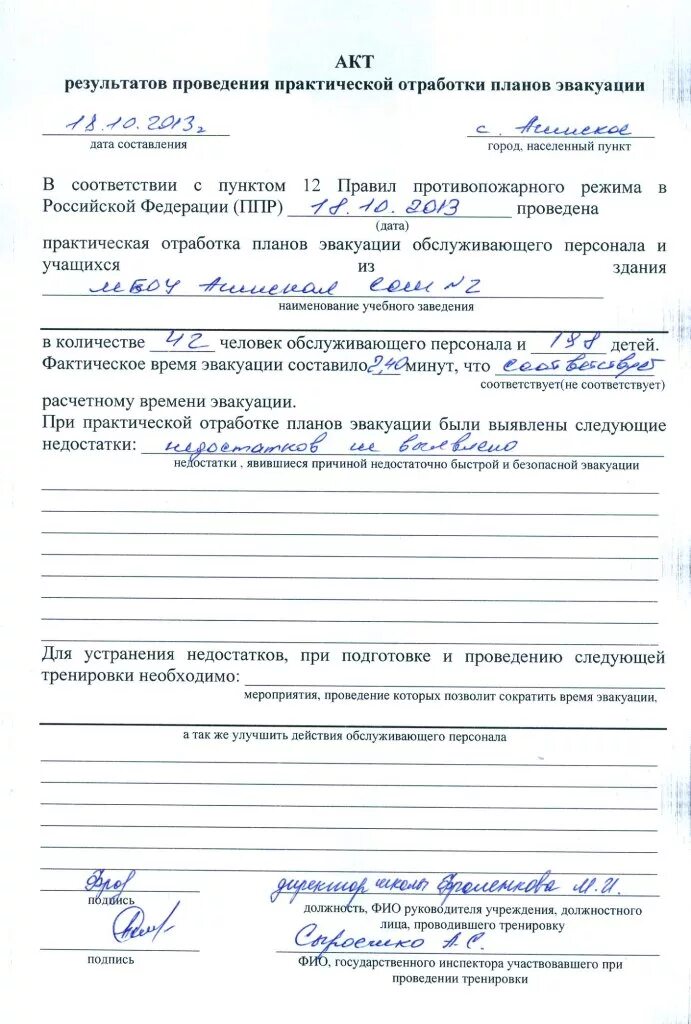 АКТ
результатов проведения практической отработки планов эвакуации
18.10.2013г с. Агинское
дата составления город, населенный пункт
В соответствии с пунктом 12 Правил противопожарного режима в
Российской Федерации (ППР) 18.10.2013 проведена
(дата)
практическая отработка планов эвакуации обслуживающего персонала и
учащихся из здания
МБОУ Агинская СОШ №2
наименование учебного заведения
в количестве 42 человек обслуживающего персонала и 198 детей.
Фактическое время эвакуации составило 2,40 минут, что соответствует
соответствует(не соответствует)
расчетному времени эвакуации.
При практической отработке планов эвакуации были выявлены следующие
недостатки: недостатков не выявлено
недостатки , явившиеся причиной недостаточно быстрой и безопасной эвакуации
Для устранения недостатков, при подготовке и проведению следующей
тренировки необходимо:
мероприятия, проведение которых позволит сократить время эвакуации,
а так же улучшить действия обслуживающего персонала
директор школы Фроленкова М.И.
подпись должность, ФИО руководителя учреждения, должностного
лица, проводившего тренировку
А.С.
подпись ФИО, государственного инспектора участвовавшего при
проведении тренировки